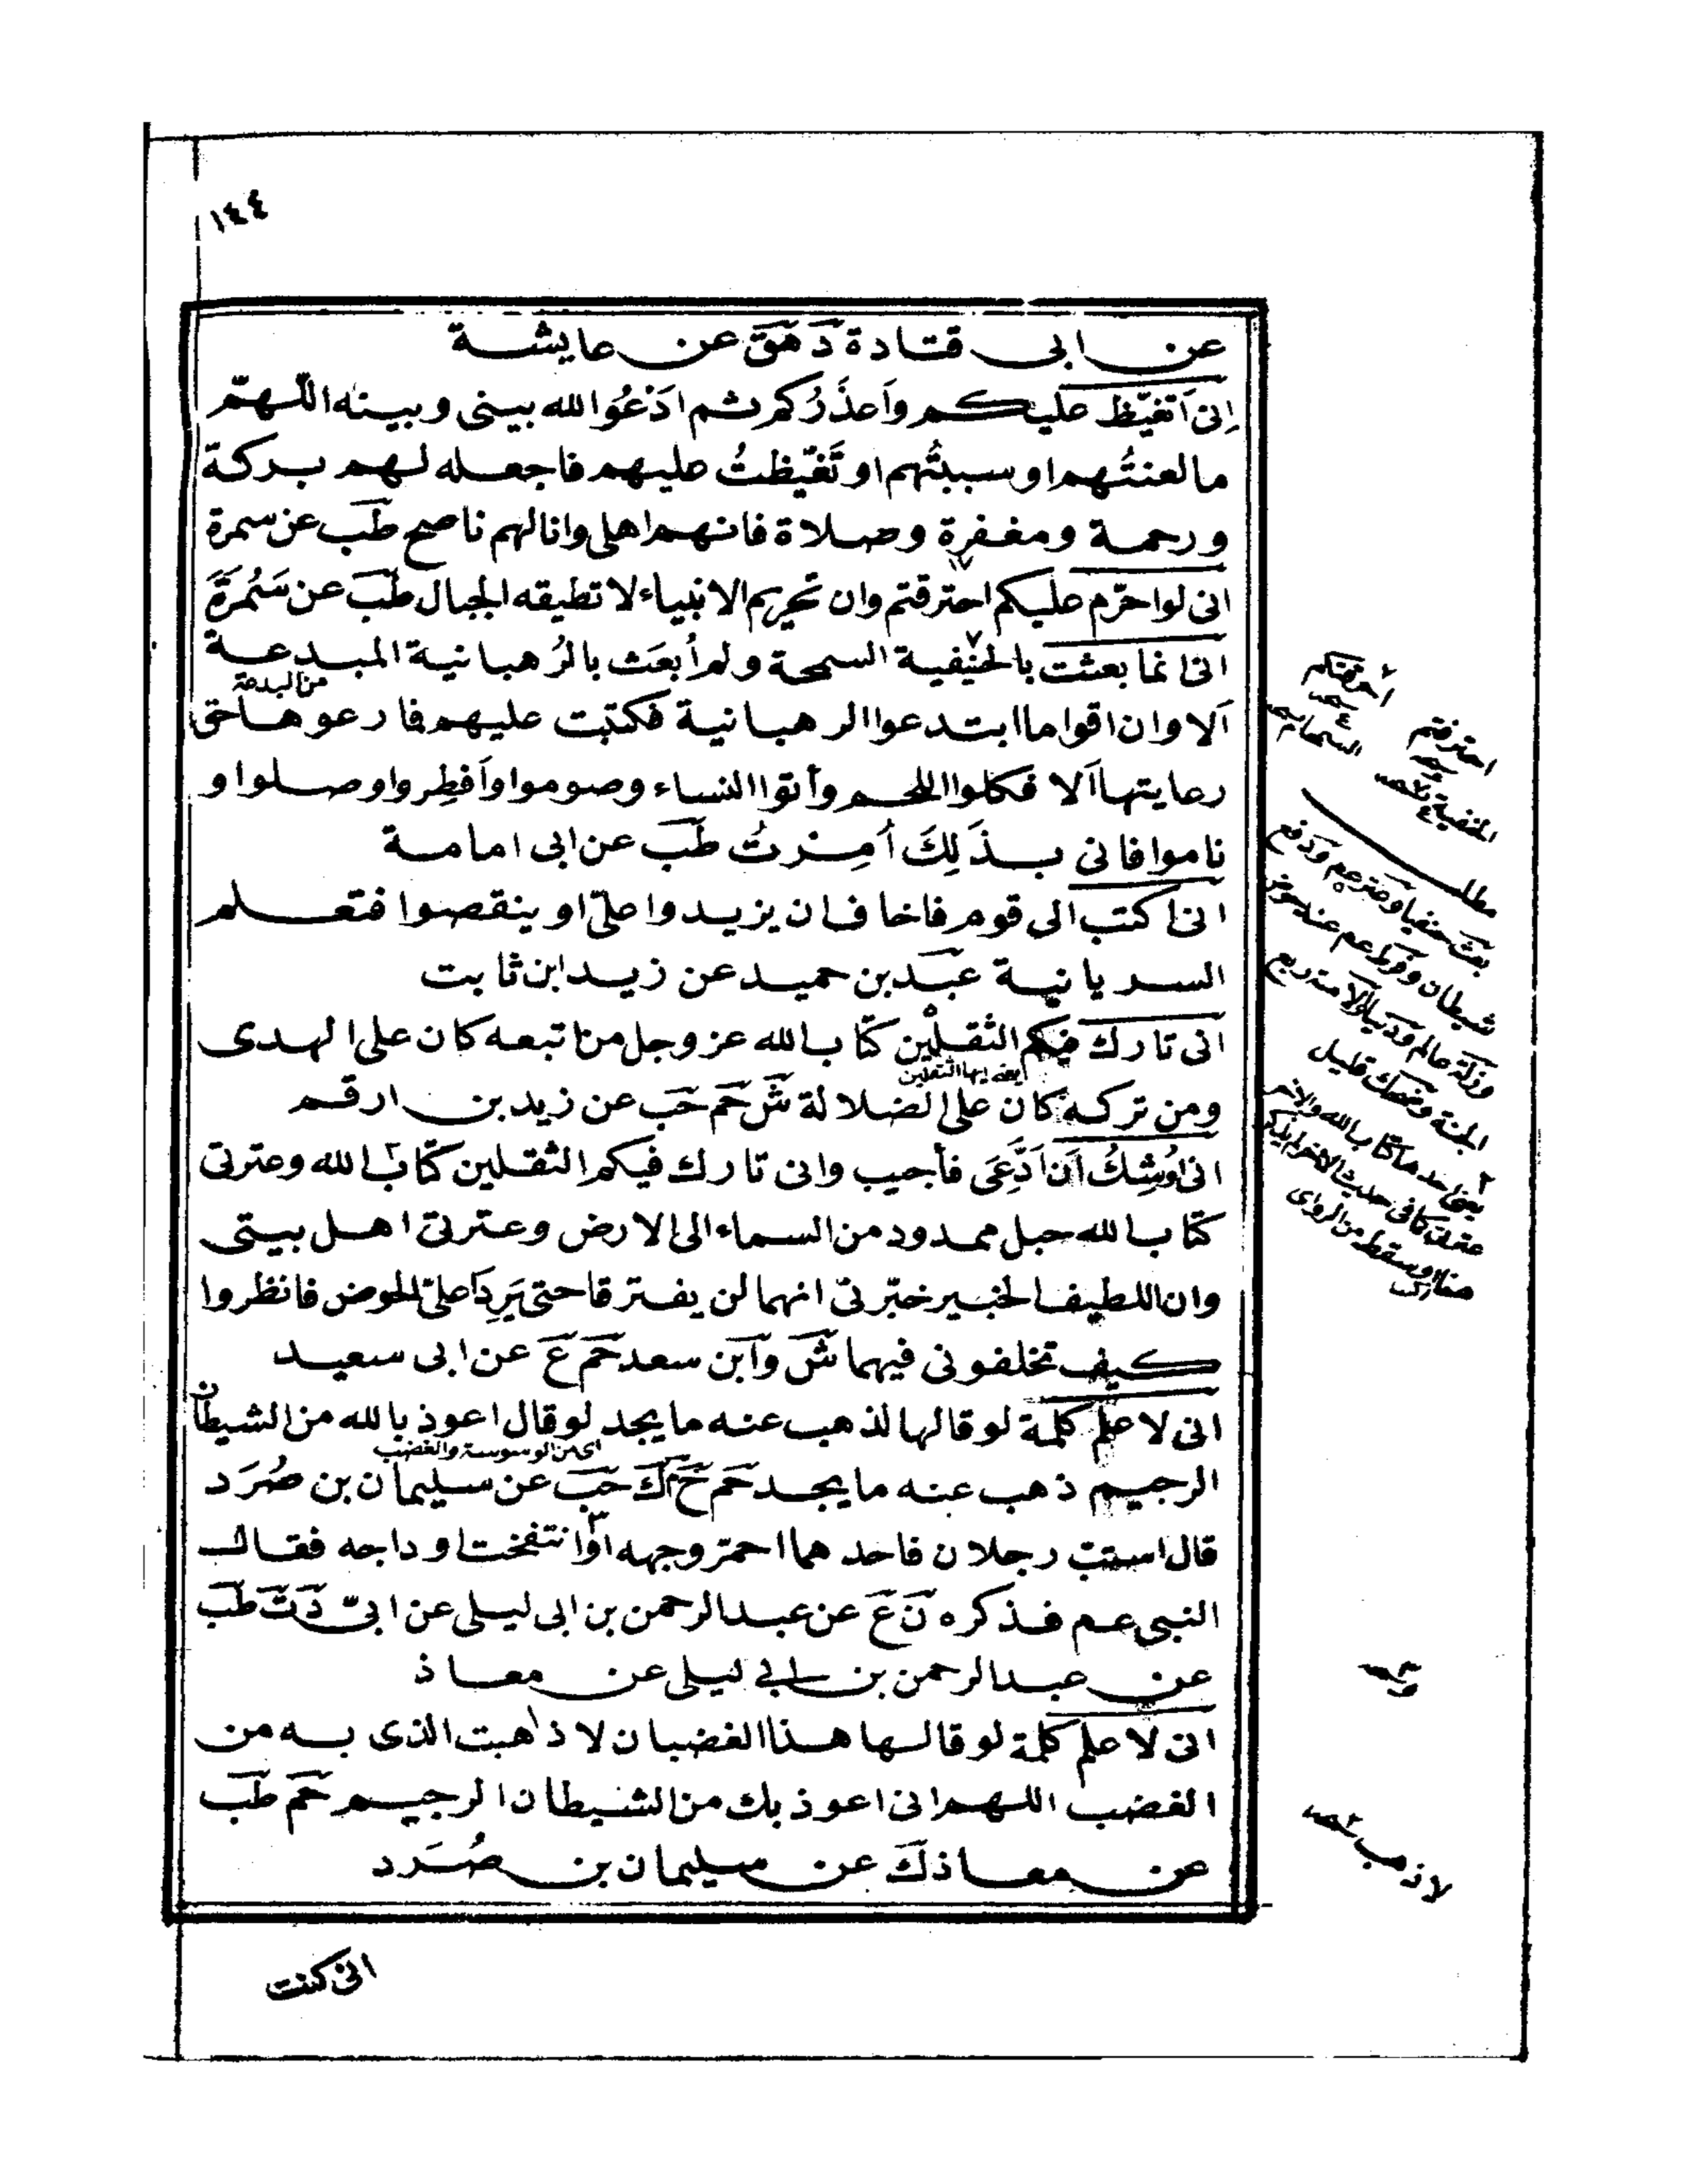 ١٤٤
عن ابى قتادة دَ هَقَ عن عايشة
اِنى اَتغيّظ عليكم واَعذَرُكم ثم ادْعُوا الله بينى وبينه اللّهمّ
ما لعنتُهم او سببتُهم او تَغيّظتُ عليهم فاجعله لهم بركة
ورحمة ومغفرة وصلاة فانهم اهلى وانا لهم ناصح طَب عن سمرة
انى لو احرّم عليكم احترقتم وان تحريم الانبياء لا تطيقه الجبال طَبَ عن سَمُرَةَ
انى انما بعثت بالحنيفية السمحة ولم اُبعَث بالرُهبانية المبدعة
من البدعة
اَلا وان اقواما ابتدعوا الرهبانية فكتبت عليهم فما رعوها حق
رعايتها اَلا فكلوا اللحم وأتوا النساء وصوموا واَفطِروا وصلوا و
ناموا فانى بذَلِكَ اُمِرْتُ طَبَ عن ابى امامة
انى اكتب الى قوم فاخاف ان يزيدوا علىّ او ينقصوا فتعلم
السريانية عَبَد بن حميد عن زيد ابن ثابت
انى تارك فيكم الثقلين كتاب الله عز وجل من اتبعه كان على الهدى
ايضه ايها الثقلين
ومن تركه كان على الضلالة شَ حَم حَب عن زيد بن ارقم
انى اُوشِكُ اَن اَدَّعَى فأجيب وانى تارك فيكم الثقلين كتابَ الله وعترتى
كتاب الله حبل ممدود من السماء الى الارض وعترتى اهل بيتى
وان اللطيف الخبير خبّرنى انهما لن يفترقا حتى يَرِدَا علىّ الحوض فانظروا
كيف تخلفونى فيهما شَ وَابَن سعد حَم عَ عن ابى سعيد
انى لاعلم كلمة لو قالها لذهب عنه ما يجد لو قال اعوذ بالله من الشيطان
اى من الوسوسة والغضب
الرجيم ذهب عنه ما يجد حَم خَ م كَ حَبَ عن سليمان بن صُرَد
قال استبّ رجلان فاحدهما احمرّ وجهه اوانتفخت اوداجه فقال
النبى عم فذكره نَ عَ عن عبد الرحمن بن ابى ليلى عن ابىّ دَ تَ طَبَ
عن عبد الرحمن بن ابي ليلى عن معاذ
انى لاعلم كلمة لو قالها هذا الغضبان لاذهبت الذى به من
الغضب اللهم انى اعوذ بك من الشيطان الرجيم حَم طَب
عن معاذ كَ عن سليمان بن صُرَد
انى كنت
احرقتكم
احترقتم
مطلب
الجنة وضحك قليل
لا ذهب